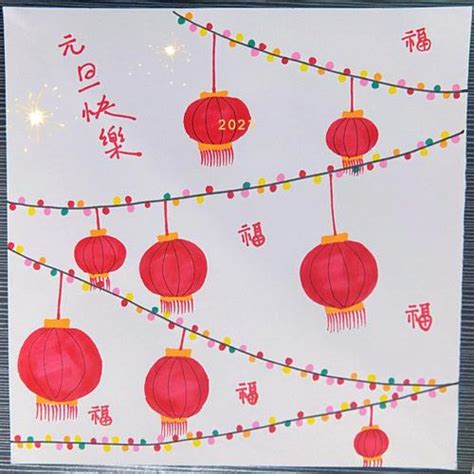 元旦快樂
福
福
福
福
福
福
福